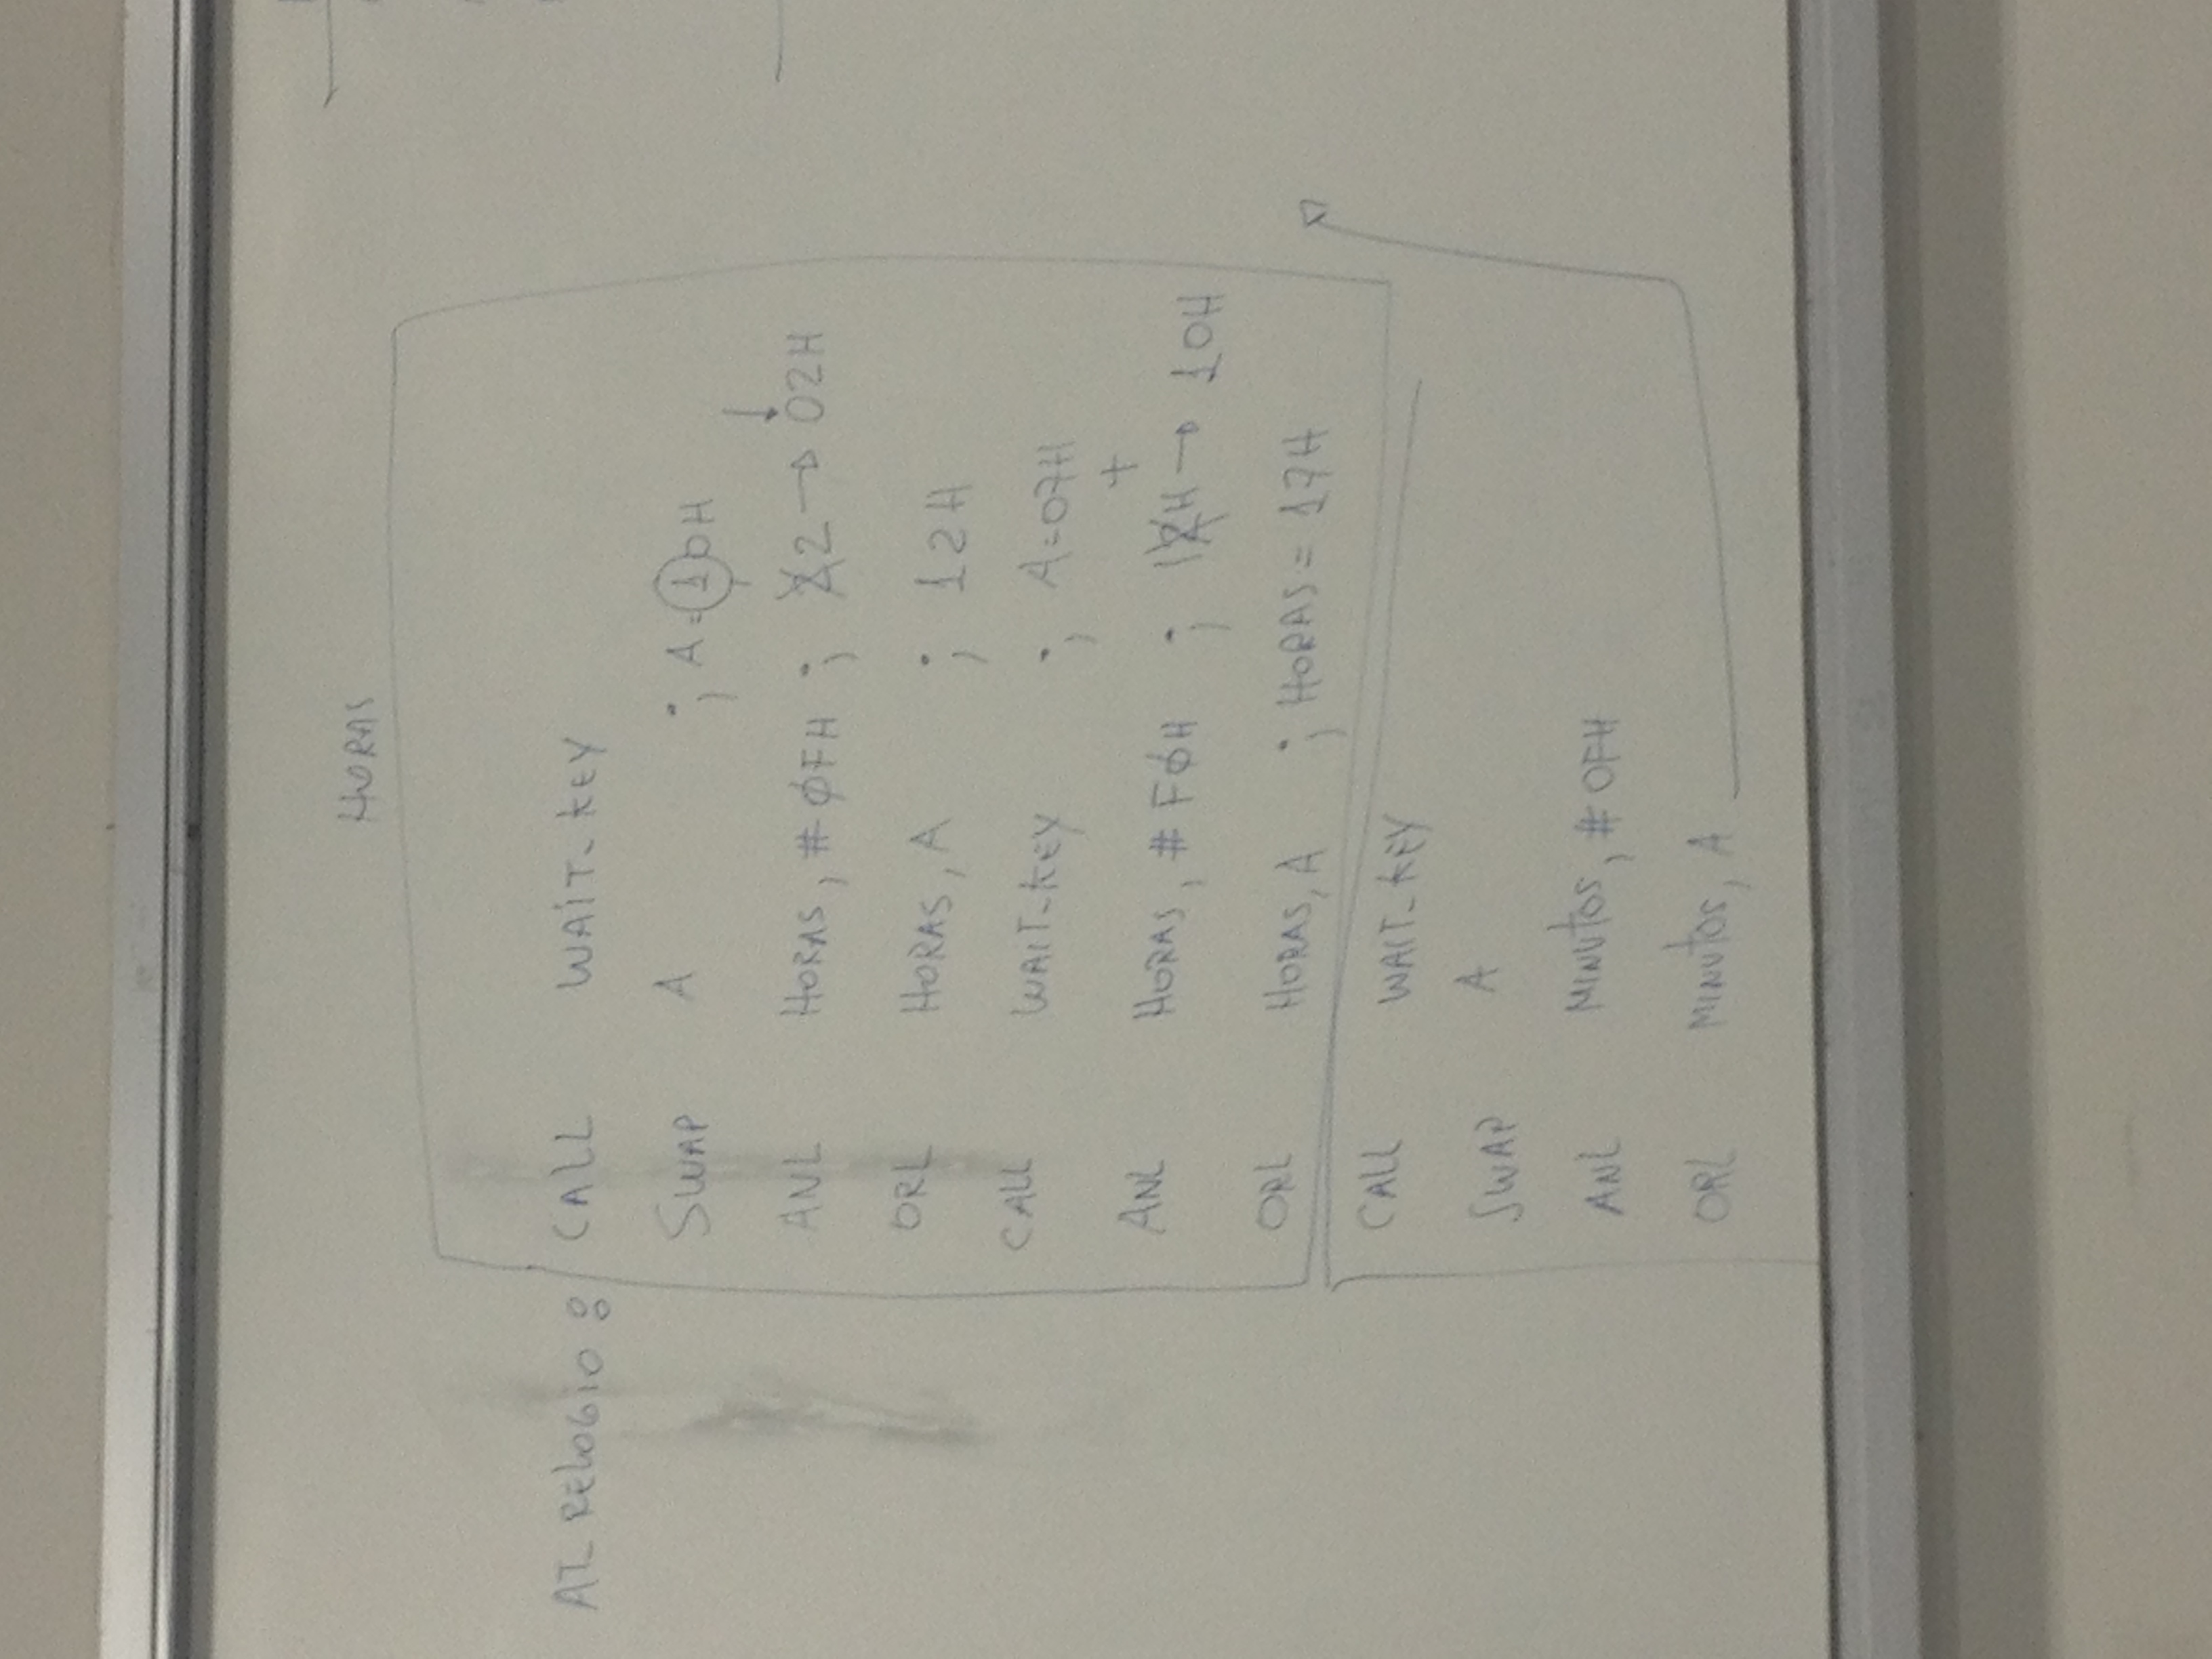 HORAS
AT_RELOGIO: CALL WAIT-KEY
SWAP A ; A=10H
ANL HORAS, #0FH ; 22 → 02H
ORL HORAS, A ; 12H
CALL WAIT-KEY ; A=07H
+
ANL HORAS, #F0H ; 12H → 10H
ORL HORAS, A ; HORAS = 17H
CALL WAIT-KEY
SWAP A
ANL MINUTOS, #0FH
ORL MINUTOS, A